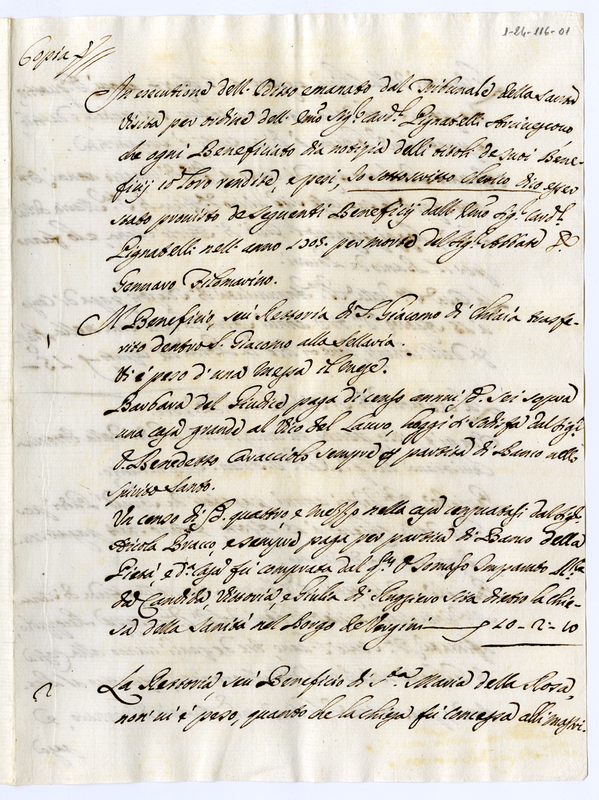 1-26-116-01
Copia
In esecutione dell' emanato dal Tribunale della Santa
Visita per ordine dell' Emo Sigr Cardl Pignatelli Arcivescovo
che ogni Beneficiato dia notizia delli titoli de suoi Bene-
ficij loro rendite, e pesi, Io sottoscritto Clerico dico esser
stato provisto de seguenti Beneficij dall' Emo Sigr Cardl
Pignatelli nell' anno 1705. per morte del Sigr Abbate D.
Gennaro Filomarino.
1 Il Beneficio, seu Rettoria di S. Giacomo di Chiaia trasfe-
rito dentro S. Giacomo alla Sellaria.
Vi è peso d'una messa il mese.
Barbara del Giudice paga di censo annui d. sei sopra
una casa grande al Vico del Lauro, hoggi si sodisfà dal Sigr
D. Benedetto Caracciolo sempre per partita di Banco nello
Spirito Santo.
Un censo di quattro e mezzo nella casa compratasi dal Sigr
Nicola Bracco, e sempre paga per partita di Banco della
Pietà, e da casa fù comprata dal D. Tomaso Imparato
Candida, Vittoria, e Giulia di Ruggiero sita dietro la chie-
sa della Sanità nel Borgo de Vergini 10-2-10
2 La Rettoria, seu Beneficio di Sta Maria della Rosa,
non vi è peso, quando che la chiesa fù concessa alli mastri